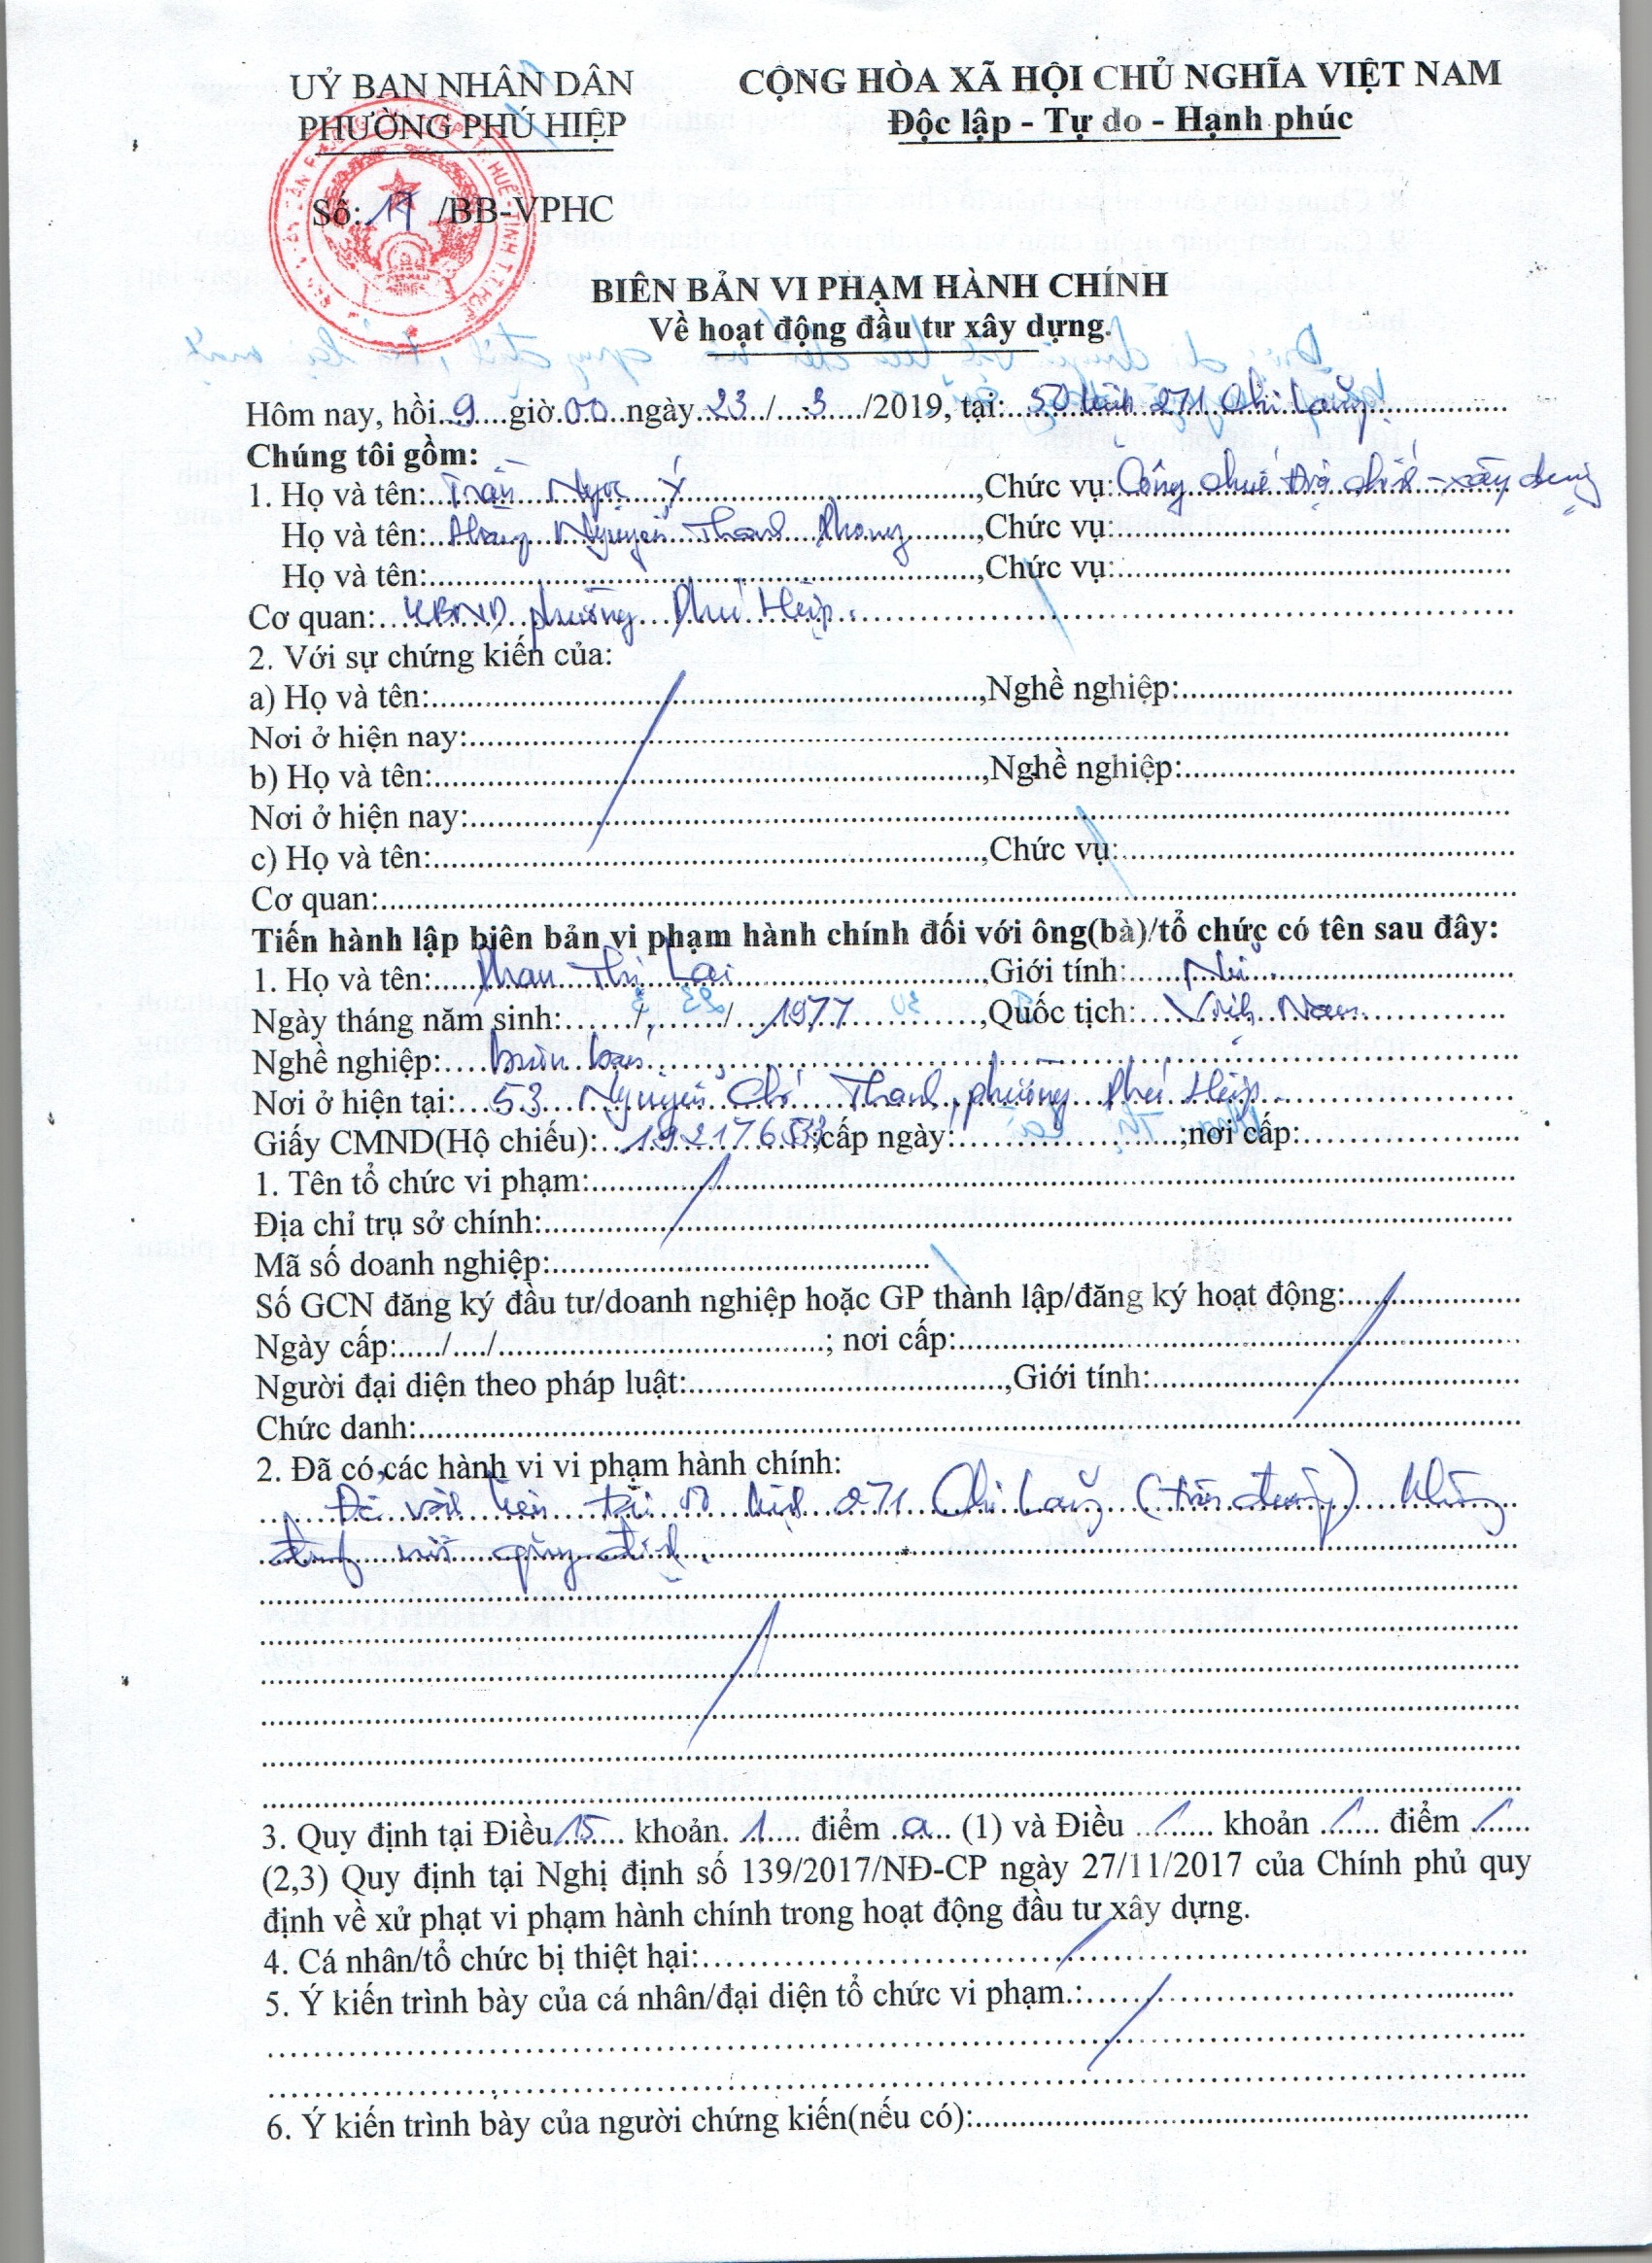 UỶ BAN NHÂN DÂN
PHƯỜNG PHÚ HIỆP
CỘNG HÒA XÃ HỘI CHỦ NGHĨA VIỆT NAM
Độc lập - Tự do - Hạnh phúc
Số: 17 /BB-VPHC
BIÊN BẢN VI PHẠM HÀNH CHÍNH
Về hoạt động đầu tư xây dựng.
Hôm nay, hồi 9 giờ 00 ngày 23 / 3 /2019, tại: 50 kiệt 271 Chi Lăng
Chúng tôi gồm:
1. Họ và tên: Trần Ngọc Ý ,Chức vụ: Công chức Địa chính - xây dựng
Họ và tên: Hoàng Nguyễn Thanh Phong ,Chức vụ:
Họ và tên: ,Chức vụ:
Cơ quan: UBND phường Phú Hiệp.
2. Với sự chứng kiến của:
a) Họ và tên: ,Nghề nghiệp:
Nơi ở hiện nay:
b) Họ và tên: ,Nghề nghiệp:
Nơi ở hiện nay:
c) Họ và tên: ,Chức vụ:
Cơ quan:
Tiến hành lập biên bản vi phạm hành chính đối với ông(bà)/tổ chức có tên sau đây:
1. Họ và tên: Phan Thị Lai ,Giới tính: Nữ
Ngày tháng năm sinh: / / 1977 ,Quốc tịch: Việt Nam
Nghề nghiệp: buôn bán
Nơi ở hiện tại: 53 Nguyễn Chí Thanh, phường Phú Hiệp
Giấy CMND(Hộ chiếu): ;cấp ngày: ;nơi cấp:
1. Tên tổ chức vi phạm:
Địa chỉ trụ sở chính:
Mã số doanh nghiệp:
Số GCN đăng ký đầu tư/doanh nghiệp hoặc GP thành lập/đăng ký hoạt động:
Ngày cấp: / / ; nơi cấp:
Người đại diện theo pháp luật: ,Giới tính:
Chức danh:
2. Đã có các hành vi vi phạm hành chính:
Để vật liệu tại 50 kiệt 271 Chi Lăng (trên đường) không
đúng với quy định.
3. Quy định tại Điều 15 khoản. 1 điểm a (1) và Điều / khoản / điểm /
(2,3) Quy định tại Nghị định số 139/2017/NĐ-CP ngày 27/11/2017 của Chính phủ quy
định về xử phạt vi phạm hành chính trong hoạt động đầu tư xây dựng.
4. Cá nhân/tổ chức bị thiệt hại:
5. Ý kiến trình bày của cá nhân/đại diện tổ chức vi phạm.:
6. Ý kiến trình bày của người chứng kiến(nếu có):